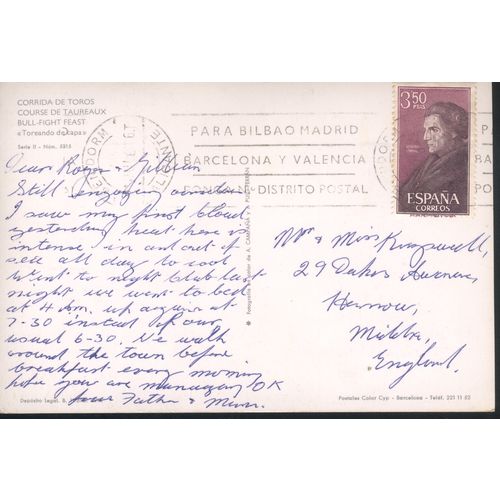 CORRIDA DE TOROS
COURSE DE TAUREAUX
BULL-FIGHT FEAST
«Toreando de capa»
Serie II - Núm. 5315
BENIDORM
ALICANTE
PARA BILBAO MADRID
BARCELONA Y VALENCIA
DISTRITO POSTAL
3,50 PTAS
ESPAÑA
CORREOS
PA
BAR
PO
Dear Roger & Gillian
Still enjoying ourselves
I saw my first cloud
yesterday heat here is
intense in and out of
sea all day to cool
Went to night club last
night we went to bed
at 4 Am. up again at
7-30 instead of our
usual 6-30. We walk
around the town before
breakfast every morning
hope you are managing OK
your Father & Mum.
Mr & Miss
29 Dukes Avenue,
Harrow,
Middx,
England.
Depósito Legal. B.
Postales Color Cyp - Barcelona - Teléf. 221 11 62